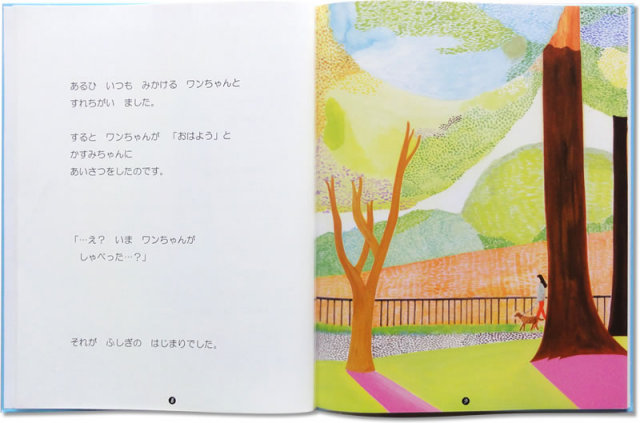 あるひ　いつも　みかける　ワンちゃんと
すれちがい　ました。
すると　ワンちゃんが　「おはよう」と
かすみちゃんに
あいさつをしたのです。
「…え？　いま　ワンちゃんが
しゃべった…？」
それが　ふしぎの　はじまりでした。
8
9